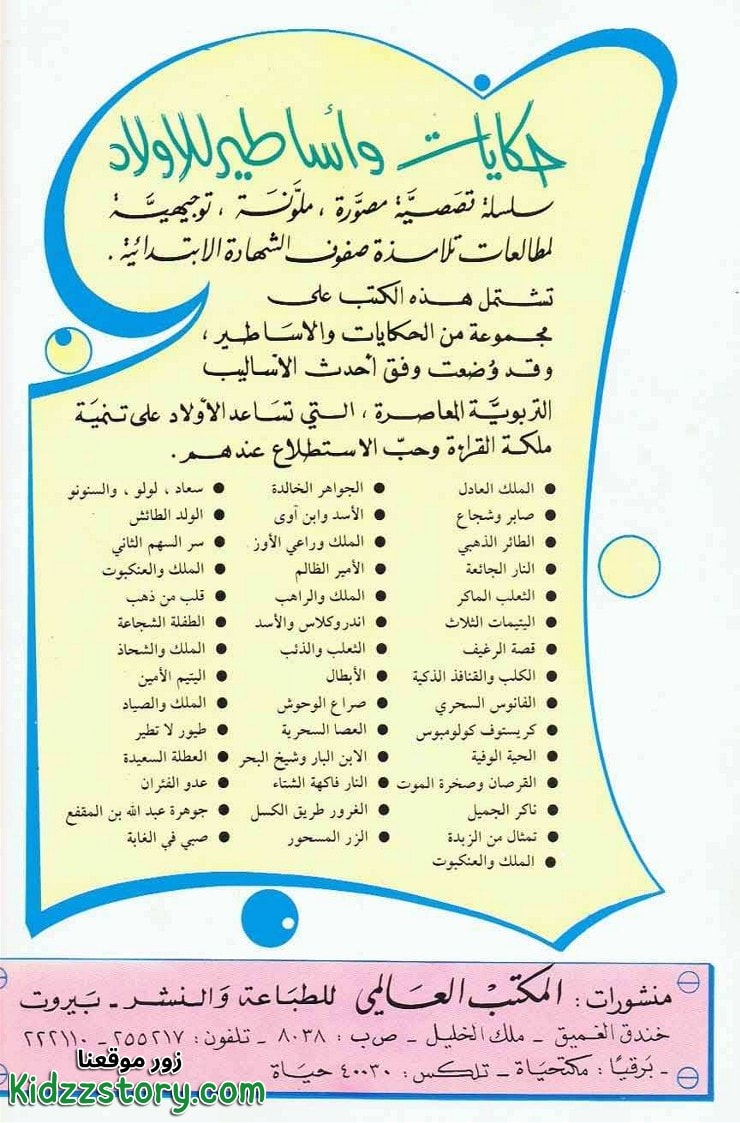 حكايات وأساطير للأولاد
سلسلة قصَصيَّة مصَوَّرة ، ملوَّنَة ، توجيهيَّة
لمطالعات تلامذة صفوف الشهادة الابتدائية .
تشتمل هذه الكتب على
مجموعة من الحكايات والاسَاطير ،
وقد وُضعت وفق أحدث الأساليب
التربويَّة المعاصرة ، التي تسَاعد الأولاد على تنمية
ملكة القراءة وحبّ الاستطلاع عندهم .
● الملك العادل ● الجواهر الخالدة ● سعاد ، لولو ، والسنونو
● صابر وشجاع ● الأسد وابن آوى ● الولد الطائش
● الطائر الذهبي ● الملك وراعي الأوز ● سر السهم الثاني
● النار الجائعة ● الأمير الظالم ● الملك والعنكبوت
● الثعلب الماكر ● الملك والراهب ● قلب من ذهب
● اليتيمات الثلاث ● اندروكلاس والأسد ● الطفلة الشجاعة
● قصة الرغيف ● الثعلب والذئب ● الملك والشحاذ
● الكلب والقنافذ الذكية ● الأبطال ● اليتيم الأمين
● الفانوس السحري ● صراع الوحوش ● الملك والصياد
● كريستوف كولومبوس ● العصا السحرية ● طيور لا تطير
● الحية الوفية ● الابن البار وشيخ البحر ● العطلة السعيدة
● القرصان وصخرة الموت ● النار فاكهة الشتاء ● عدو الفئران
● ناكر الجميل ● الغرور طريق الكسل ● جوهرة عبد الله بن المقفع
● تمثال من الزبدة ● الزر المسحور ● صبي في الغابة
● الملك والعنكبوت
منشورات : المكتب العالمي للطباعة والنشر - بيروت
خندق الغميق - ملك الخليل - صب : ٨٠٣٨ - تلفون : ٢٥٥٢١٧ - ٢٢٢١١٠
- بَرقيًا : مكتحيَاة - تلكس : ٤٠٠٣٠ حيَاة
زور موقعنا
Kidzzstory.com